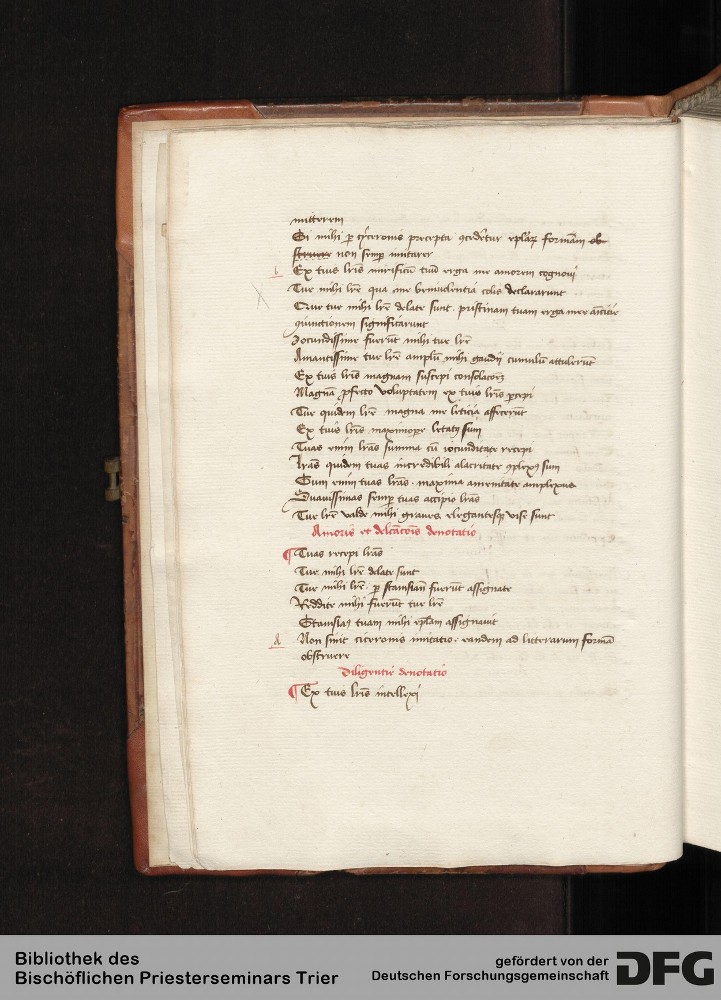 mitterem
Si mihi p cyceronis precepta ꝯcedetur eplaꝝ formam ob
struere non semp imitarer
L Ex tuis lris mirificū tuū erga me amorem cognoui
Tue mihi lre qua me beniuolentia colis declararunt
Cūe tue mihi lre delate sunt. pristinam tuam erga me amicicie
ꝯiunctionem significarunt
Jocundissime fuerūt mihi tue lre
Amantissime tue lre amplū mihi gaudij cumulū attulerūt
Ex tuis lris magnam suscepi consolacoēꝫ
Magnā ꝓfecto voluptatem ex tuis lris ꝑcepi
Tue quidem lre magna me leticia affecerūt
Ex tuis lris maximope letatꝯ sum
Tuas enim lras summa cū iocunditate recepi
lras quidem tuas incredibili alacritate ꝯplexꝯ sum
Cum enim tuas lras. maxima amenitate amplexus
Suauissimas semp tuas accipio lras
Tue lre valde mihi graues elegantesqꝫ vise sunt
Amoris et delcacois denotatio
¶ Tuas recepi lras
Tue mihi lre delate sunt
Tue mihi lre. ꝑ stanslaū fuerūt assignate
Reddite mihi fuerūt tue lre
Stanislaꝯ tuam mihi eplam assignauit
A Non sinit ciceronis imitatio. eandem ad litterarum formā
obstruere
Diligentie denotatio
¶ Ex tuis lris intellexi
Bibliothek des
Bischöflichen Priesterseminars Trier
gefördert von der
Deutschen Forschungsgemeinschaft DFG